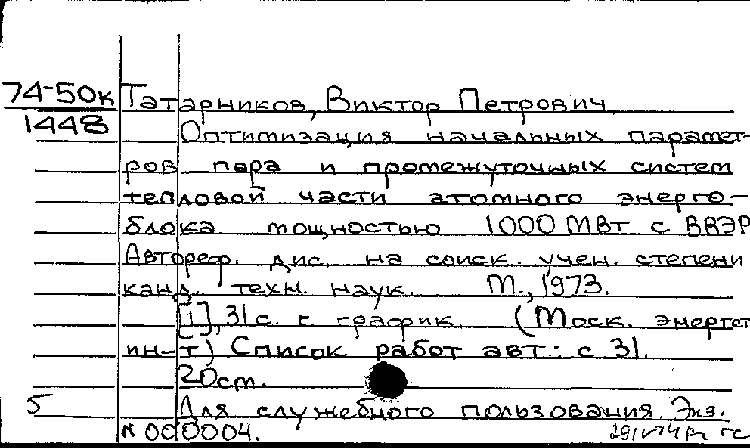 74-50к Татарников, Виктор Петрович
1448
Оптимизация начальных парамет-
ров пара и промежуточных систем
тепловой части атомного энерго-
блока мощностью 1000 МВт с ВВЭР
Автореф. дис. на соиск. учен. степени
канд. техн. наук. М., 1973.
[1], 31 с. с график. (Моск. энергет
ин-т) Список работ авт.: с 31.
20 см.
5 Для служебного пользования. Экз.
N 000004.